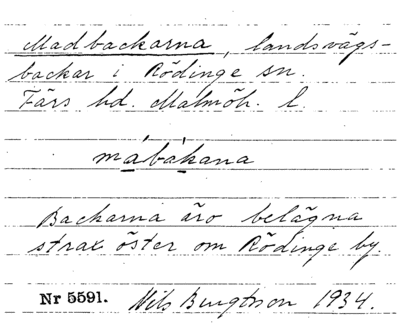 Madbackarna, landsvägs-
backar i Rödinge sn.
Färs hd. Malmöh. l.
mábákana
Backarna äro belägna
strax öster om Rödinge by.
Nr 5591. Nils Bengtsson 1934.